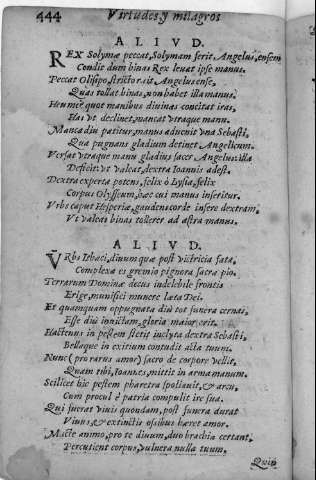 444 Virtudes, y milagros
ALIVD.
REX Solymæ peccat, Solymam ferit Angelus, ensem
Condit dum binas Rex leuat ipse manus.
Peccat Olisipo, strictor ait, Angelus ense,
Quas tollat binas, non habet illa manus.
Heu mihi quot manibus diuinas concitat iras,
Has vt declinet, mancat vtraque manu.
Manca diu patitur, manus aduenit vna Sebasti,
Quæ pugnans gladium detinet Angelicum.
Versat vtraque manu gladius sacer Angelus: illa
Deficit: vt valeat, dextra Ioannis adest.
Dextra experta potens, felix ô Lysia, felix
Corpus Olysseum, hæc cui manus inseritur.
Vrbs caput Hesperiæ, gaudens corde insere dextram,
Vt valeat binas tollere ad astra manus.
ALIVD.
Vrbs Ithaci, diuum quæ post victricia fata,
Complexa es gremio pignora sacra pio.
Terrarum Dominæ decus indelebile frontis
Erige, munifici munere læta Dei.
Et quamquam oppugnata diu tot funera cernas,
Esse diu inuictam, gloria maior erit.
Hactenus in pestem stetit inclyta dextra Sebasti,
Bellaque in exitium contudit acta tuum.
Nunc (pro rarus amor) sacro de corpore vellit,
Quam tibi, Ioannes, mittit in arma manum.
Scilicet hic pestem pharetra spoliauit, & arcu,
Cum procul è patria compulit ire sua.
Qui fuerat viuis quondam, post funera durat
Viuus, & extinctis ossibus hæret amor.
Macte animo, pro te diuum, duo brachia certant,
Percutient corpus, vulnera nulla tuum.
Quip